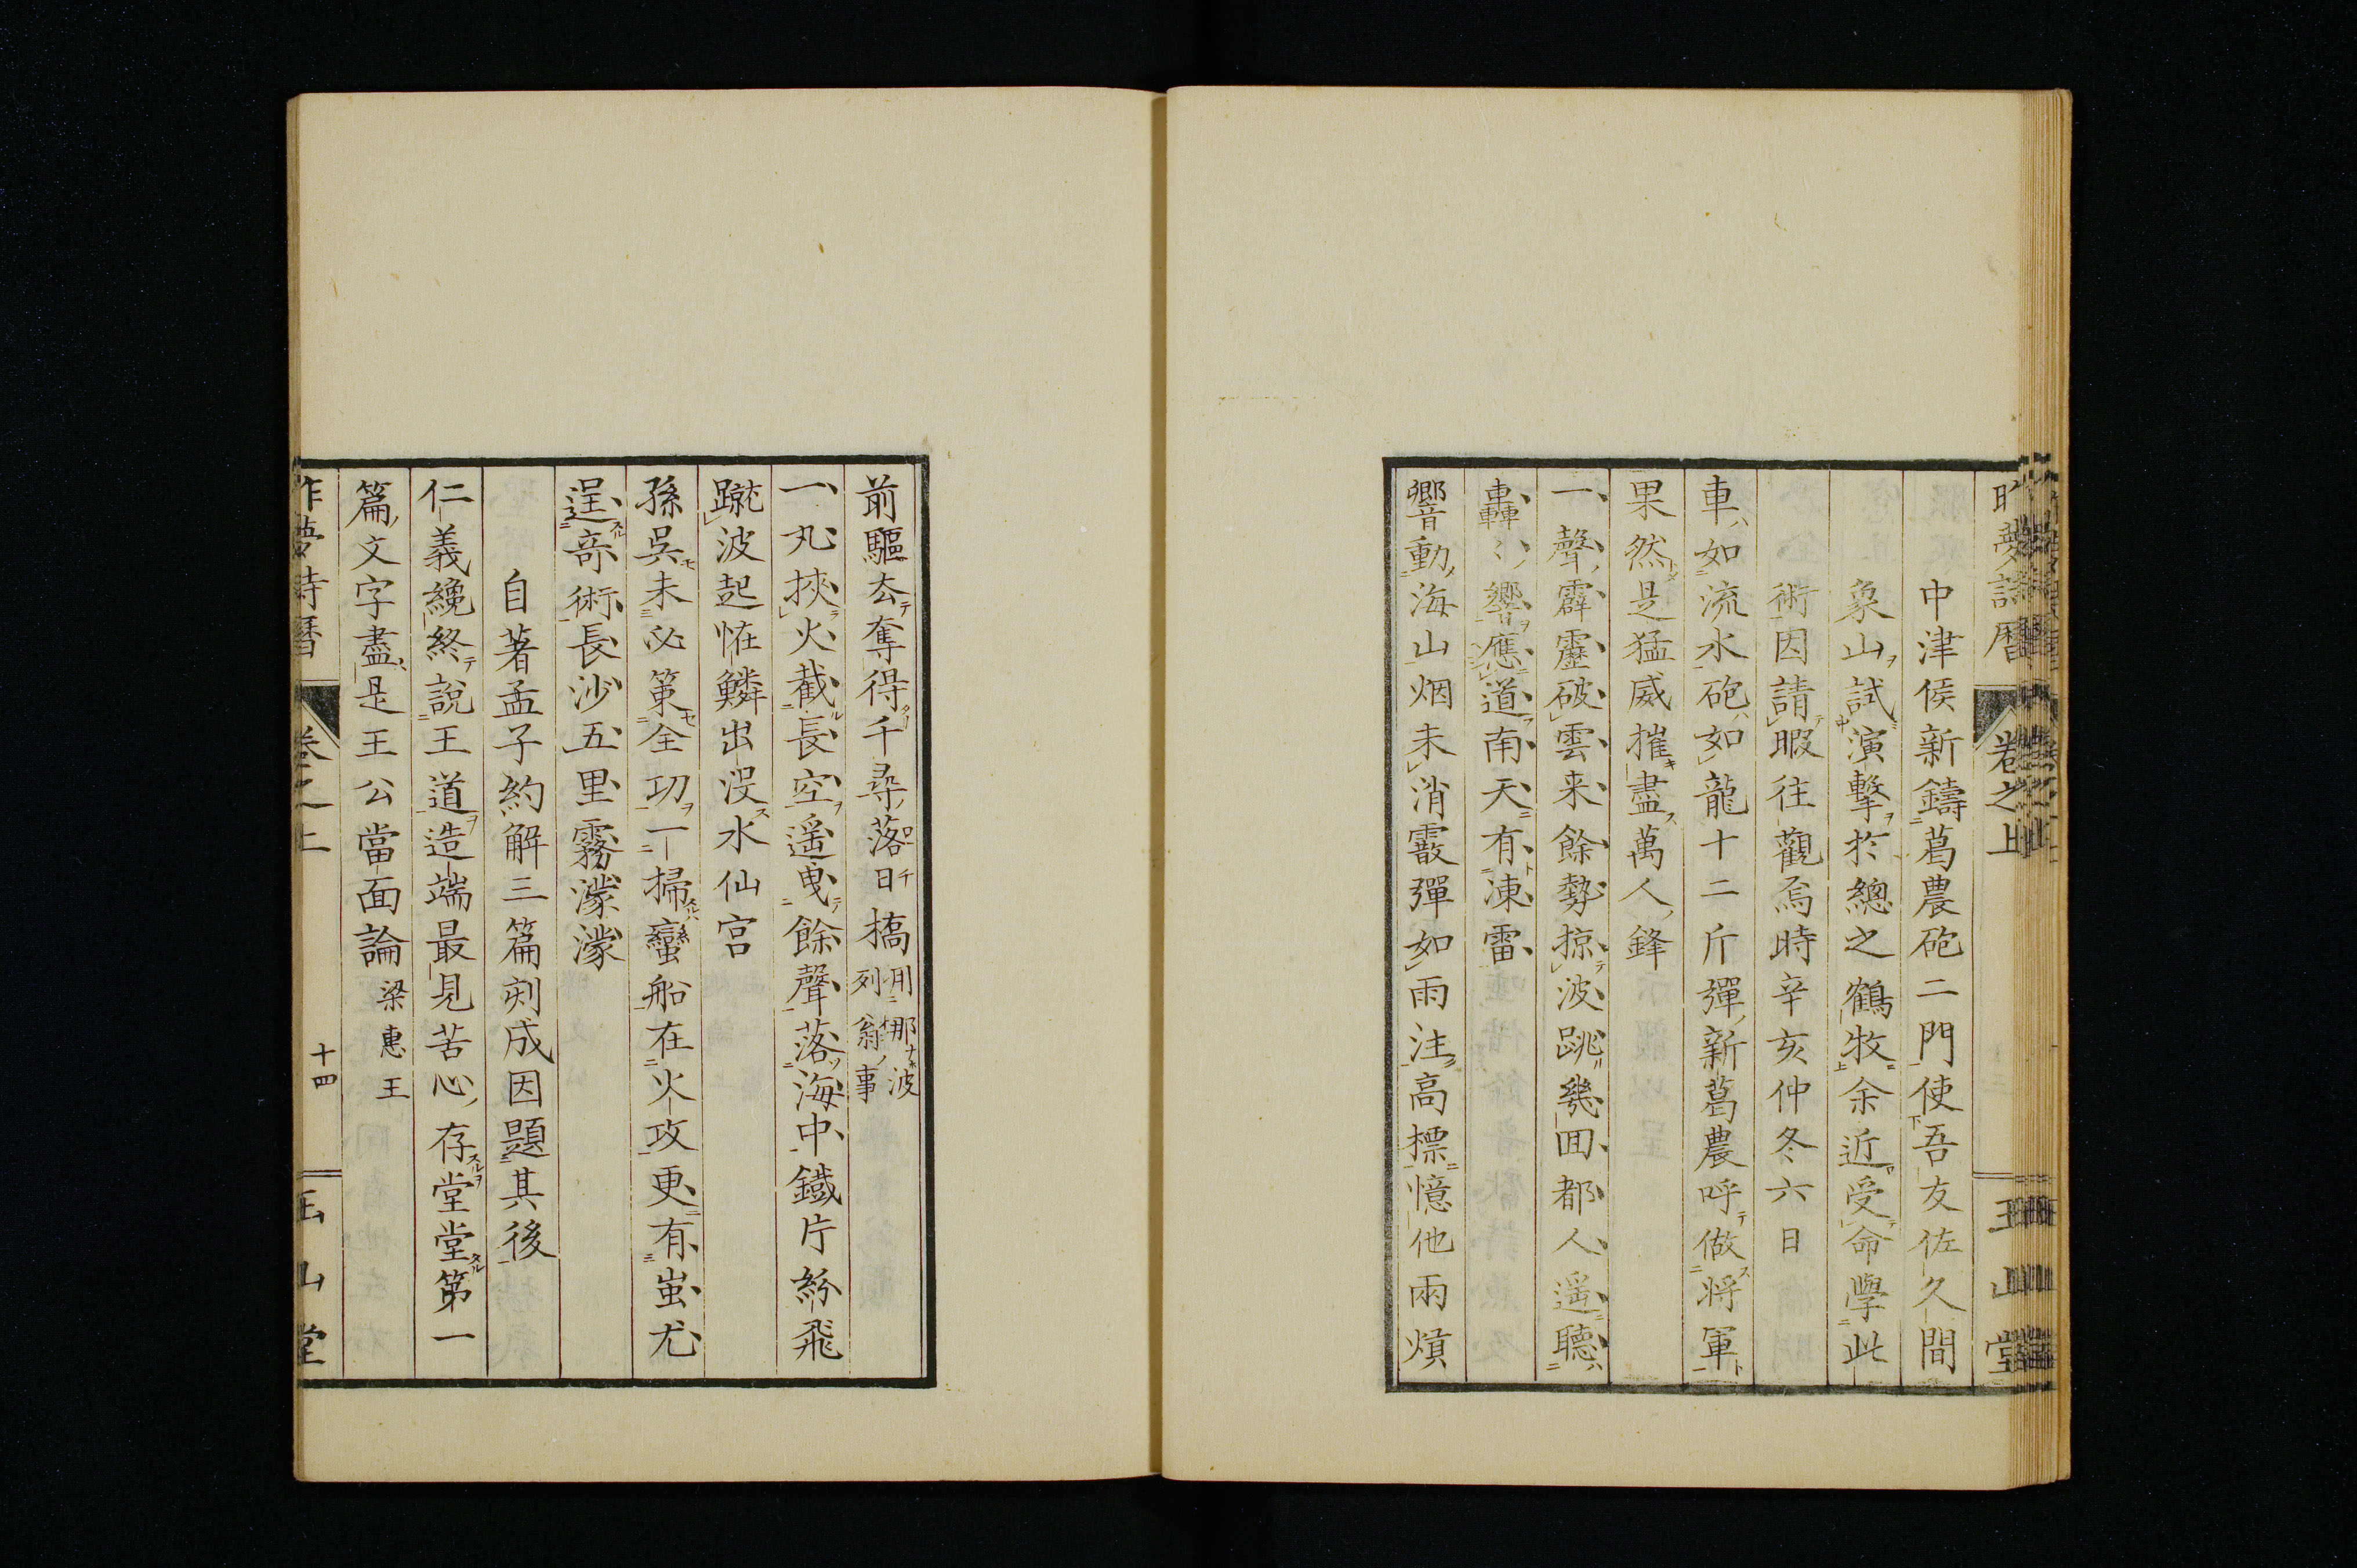 昨夢詩暦 卷之上 玉山堂
中津侯新鑄葛農砲二門使吾友佐久間
象山試演擊於總之鶴牧余近受命學此
術因請暇往觀焉時辛亥仲冬六日
車如流水砲如龍十二斤彈新葛農呼做將軍
果然是猛威摧盡萬人鋒
一聲霹靂破雲来餘勢掠波跳幾囬都人遥聽
轟〻響應道南天有凍雷
響動海山烟未消霰彈如雨注高標憶他兩熕
前驅去奪得千尋落日橋用那波列翁事
一丸挾火截長空遥曳餘聲落海中鐵片紛飛
蹴波起恠鱗出没水仙宮
孫吳未必策全功一掃蠻船在火攻更有蚩尤
逞竒術長沙五里霧濛濛
自著孟子約解三篇刻成因題其後
仁義纔終說王道造端最見苦心存堂堂第一
篇文字盡是王公當面論梁惠王
昨夢詩暦 卷之上 十四 玉山堂